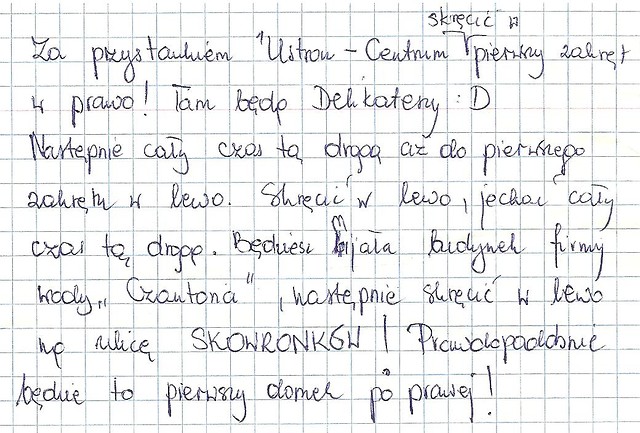 skręcić w
Za przystankiem "Ustroń - Centrum pierwszy zakręt
w prawo! Tam będą Delikatesy :D
Następnie cały czas tą drogą aż do pierwszego
zakrętu w lewo. Skręcić w lewo, jechać cały
czas tą drogą. Będziesz mijała budynek firmy
wody „Czantoria", następnie skręcić w lewo
na ulicę SKOWRONKÓW! Prawdopodobnie
będzie to pierwszy domek po prawej!